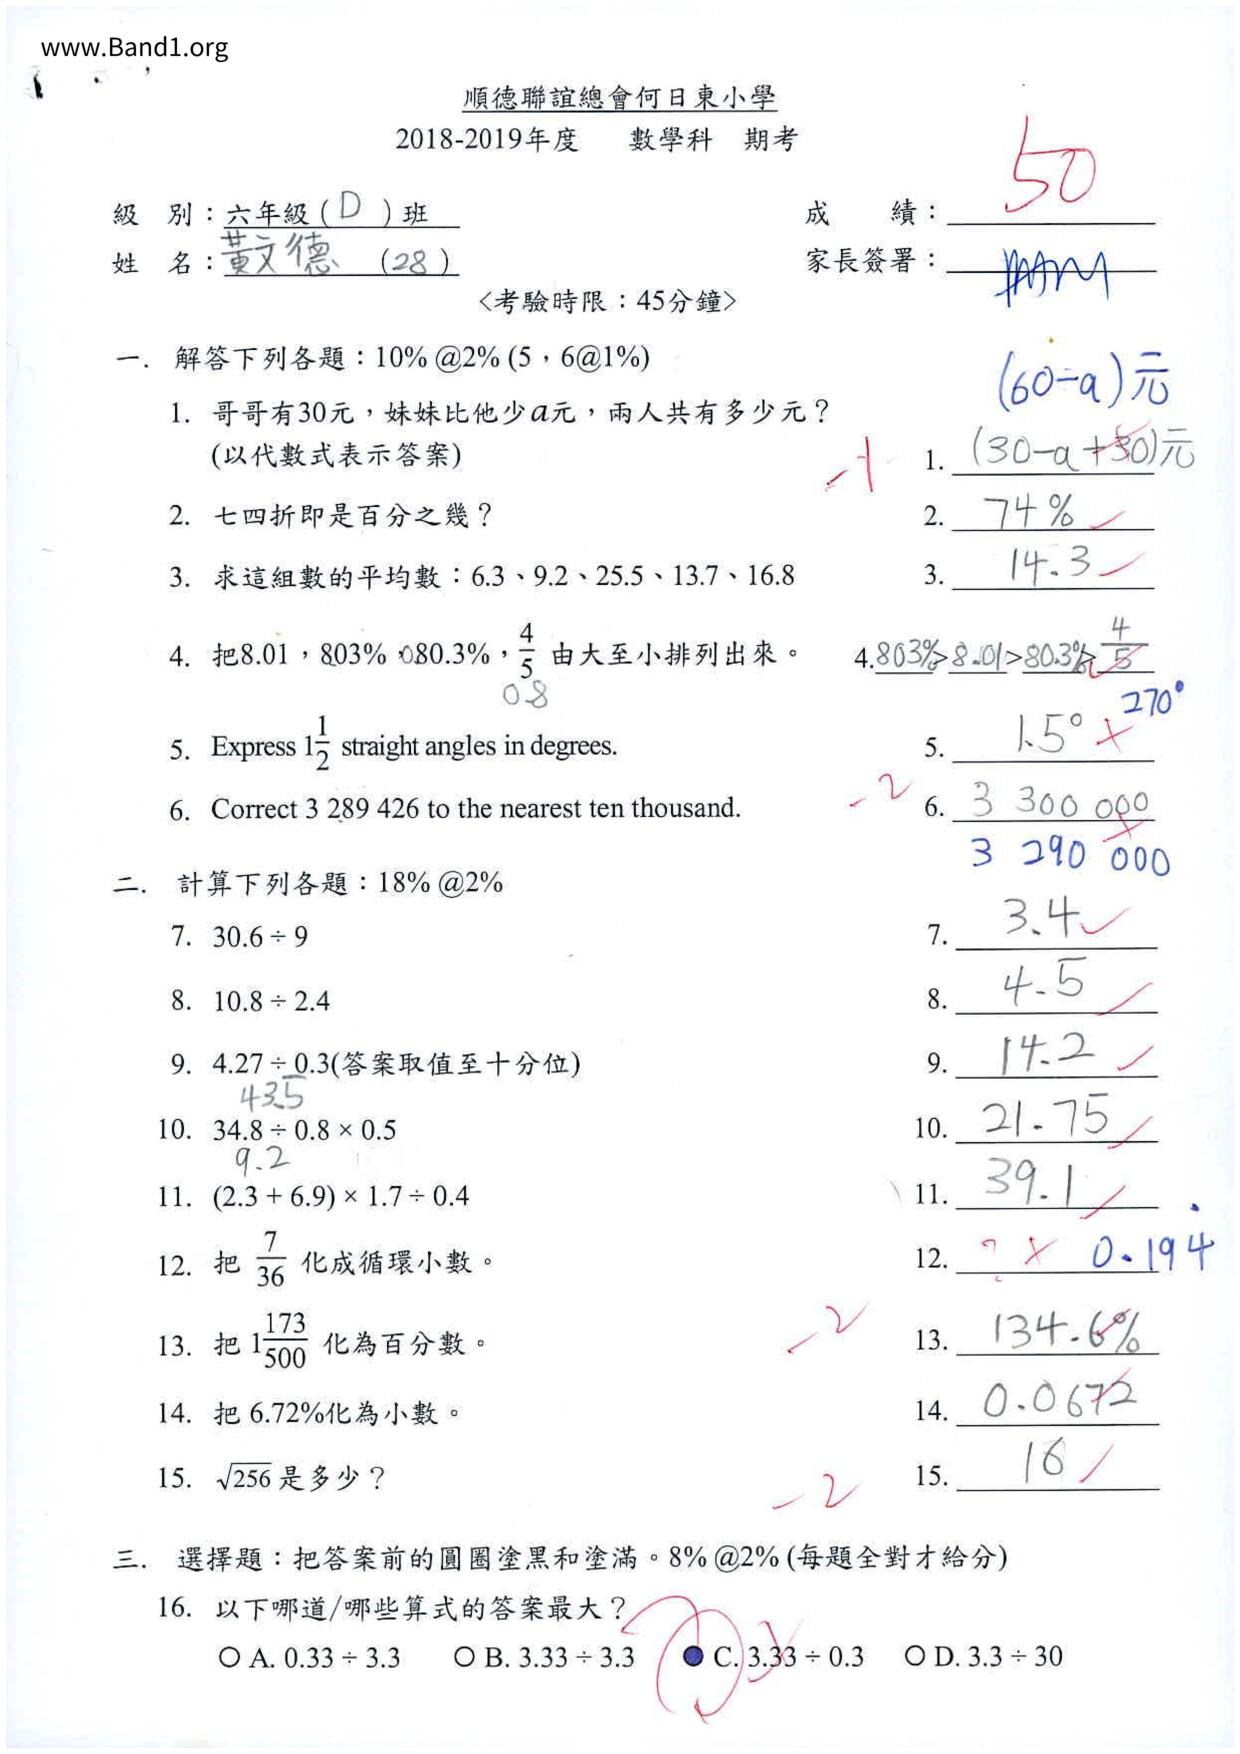 www.Band1.org
順德聯誼總會何日東小學
2018-2019年度 數學科 期考
50
級 別：六年級( D )班 成 績：
姓 名：黃文德 (28) 家長簽署：
<考驗時限：45分鐘>
一. 解答下列各題：10% @2% (5，6@1%)
(60-a)元
1. 哥哥有30元，妹妹比他少a元，兩人共有多少元？
(以代數式表示答案) -1 1. (30-a+30)元
2. 七四折即是百分之幾？ 2. 74%
3. 求這組數的平均數：6.3、9.2、25.5、13.7、16.8 3. 14.3
4. 把8.01，803%，080.3%，4/5 由大至小排列出來。 4. 803%>8.01>80.3%>4/5
0.8
270°
5. Express 1 1/2 straight angles in degrees. 5. 1.5°
6. Correct 3 289 426 to the nearest ten thousand. -2 6. 3 300 000
3 290 000
二. 計算下列各題：18% @2%
7. 30.6 ÷ 9 7. 3.4
8. 10.8 ÷ 2.4 8. 4.5
9. 4.27 ÷ 0.3(答案取值至十分位) 9. 14.2
43.5
10. 34.8 ÷ 0.8 × 0.5 10. 21.75
9.2
11. (2.3 + 6.9) × 1.7 ÷ 0.4 11. 39.1
12. 把 7/36 化成循環小數。 12. ? 0.194̇
13. 把 1 173/500 化為百分數。 -2 13. 134.6%
14. 把 6.72%化為小數。 14. 0.0672
15. √256 是多少？ -2 15. 16
三. 選擇題：把答案前的圓圈塗黑和塗滿。8% @2% (每題全對才給分)
16. 以下哪道/哪些算式的答案最大？
A. 0.33 ÷ 3.3 B. 3.33 ÷ 3.3 C. 3.33 ÷ 0.3 D. 3.3 ÷ 30